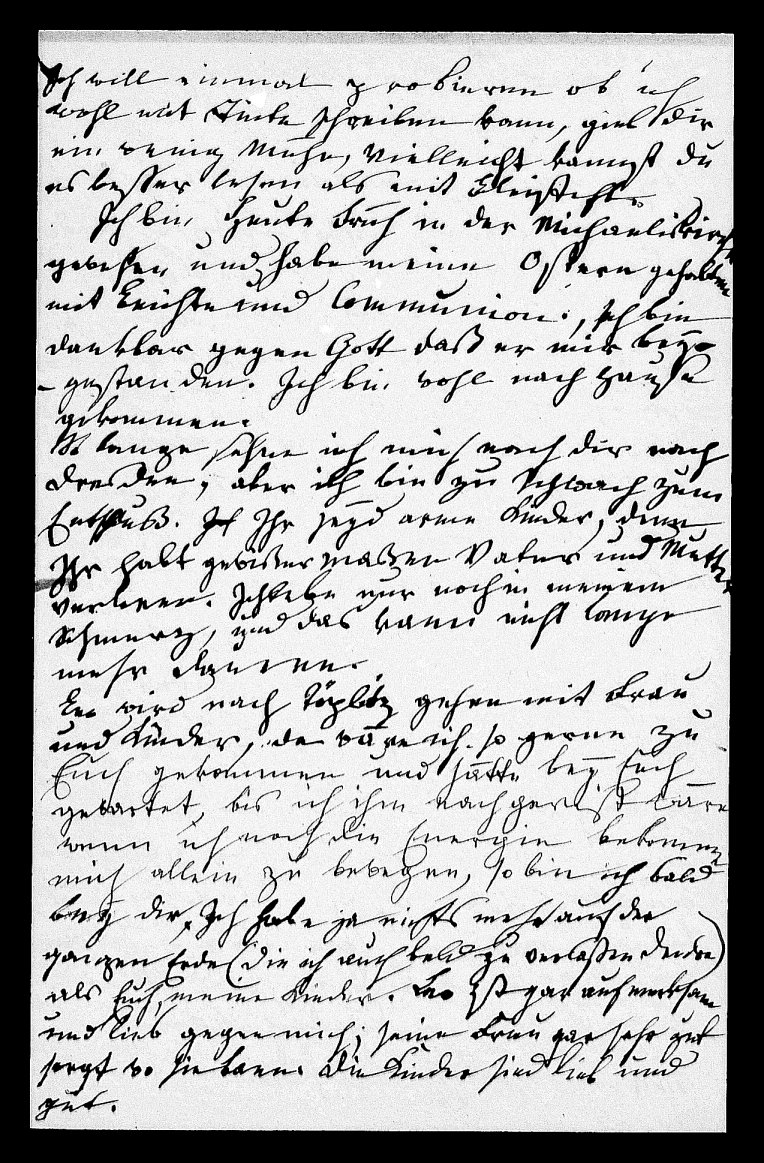 Ich will einmal probieren ob ich
wohl mit Tinte schreiben kann, gieb Dir
ein wenig Mühe, vielleicht kannst du
es besser lesen als mit Bleistift.
Ich bin heute Früh in der Michaeliskirche
gewesen und habe meine Ostern gehalten
mit Beichte und Communion, ich bin
dankbar gegen Gott daß er mir bey-
-gestanden. Ich bin wohl nach Hause
gekommen.
So lange sehne ich mich nach dir nach
Dresden, aber ich bin zu schwach zum
Entschluß. Ihr seyd arme Kinder, denn
Ihr habt gewissermaßen Vater und Mutter
verloren. Ich lebe nur noch in meinem
Schmerz, und das kann nicht lange
mehr dauern.
Leo wird nach Töplitz gehen mit Frau
und Kinder, da wäre ich so gerne zu
Euch gekommen und hätte bey Euch
gewartet bis ich ihm nachgereist wäre
wenn ich noch die Energie bekomme
mich allein zu bewegen, so bin ich bald
bey dir, Ich habe ja nichts mehr auf der
ganzen Erde (die ich auch bald zu verlassen denke)
als Euch, meine Kinder. Leo ist gar aufmerksam
und lieb gegen mich; seine Frau gar sehr gut
sorgt wo sie kann. Die Kinder sind lieb und
gut.